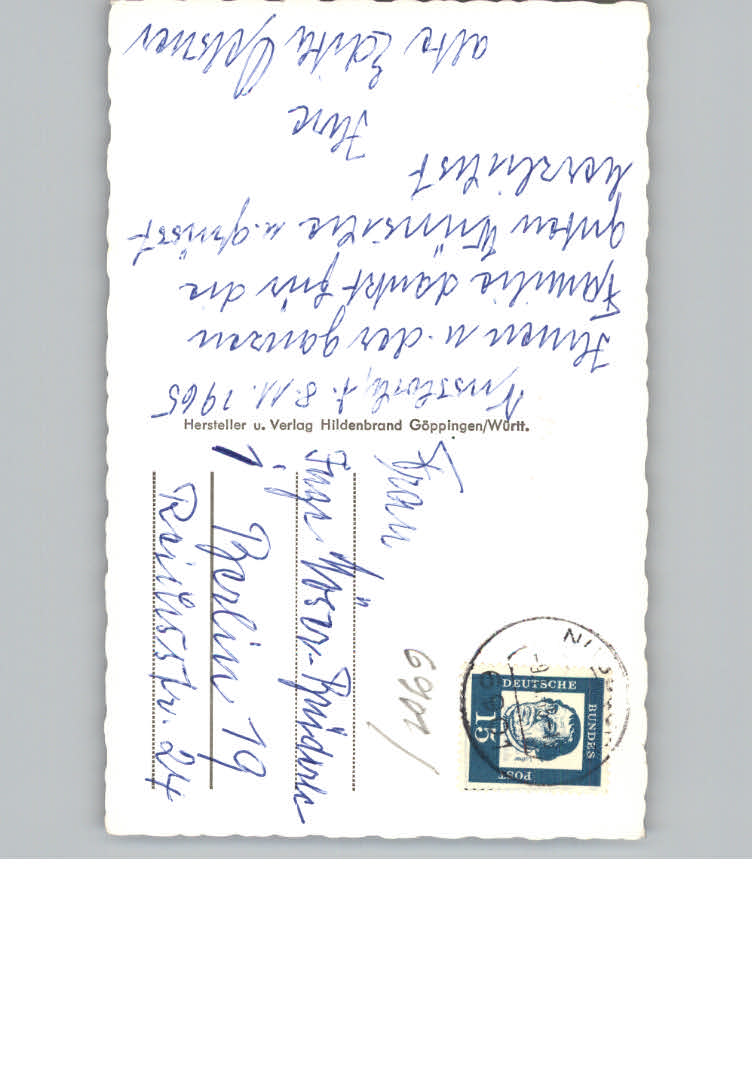 8.11.1965
Ihnen u. der ganzen
Familie dankt für die
guten Wünsche u. grüsst
herzlichst
Ihre
alte Edith
Hersteller u. Verlag Hildenbrand Göppingen/Württ.
Frau
Inge
1 Berlin 19
24
1069
DEUTSCHE
BUNDES
POST
15